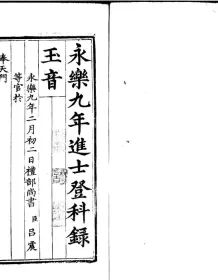 永樂九年進士登科錄
玉音
永樂九年二月初二日禮部尚書臣呂震
等官於
奉天門